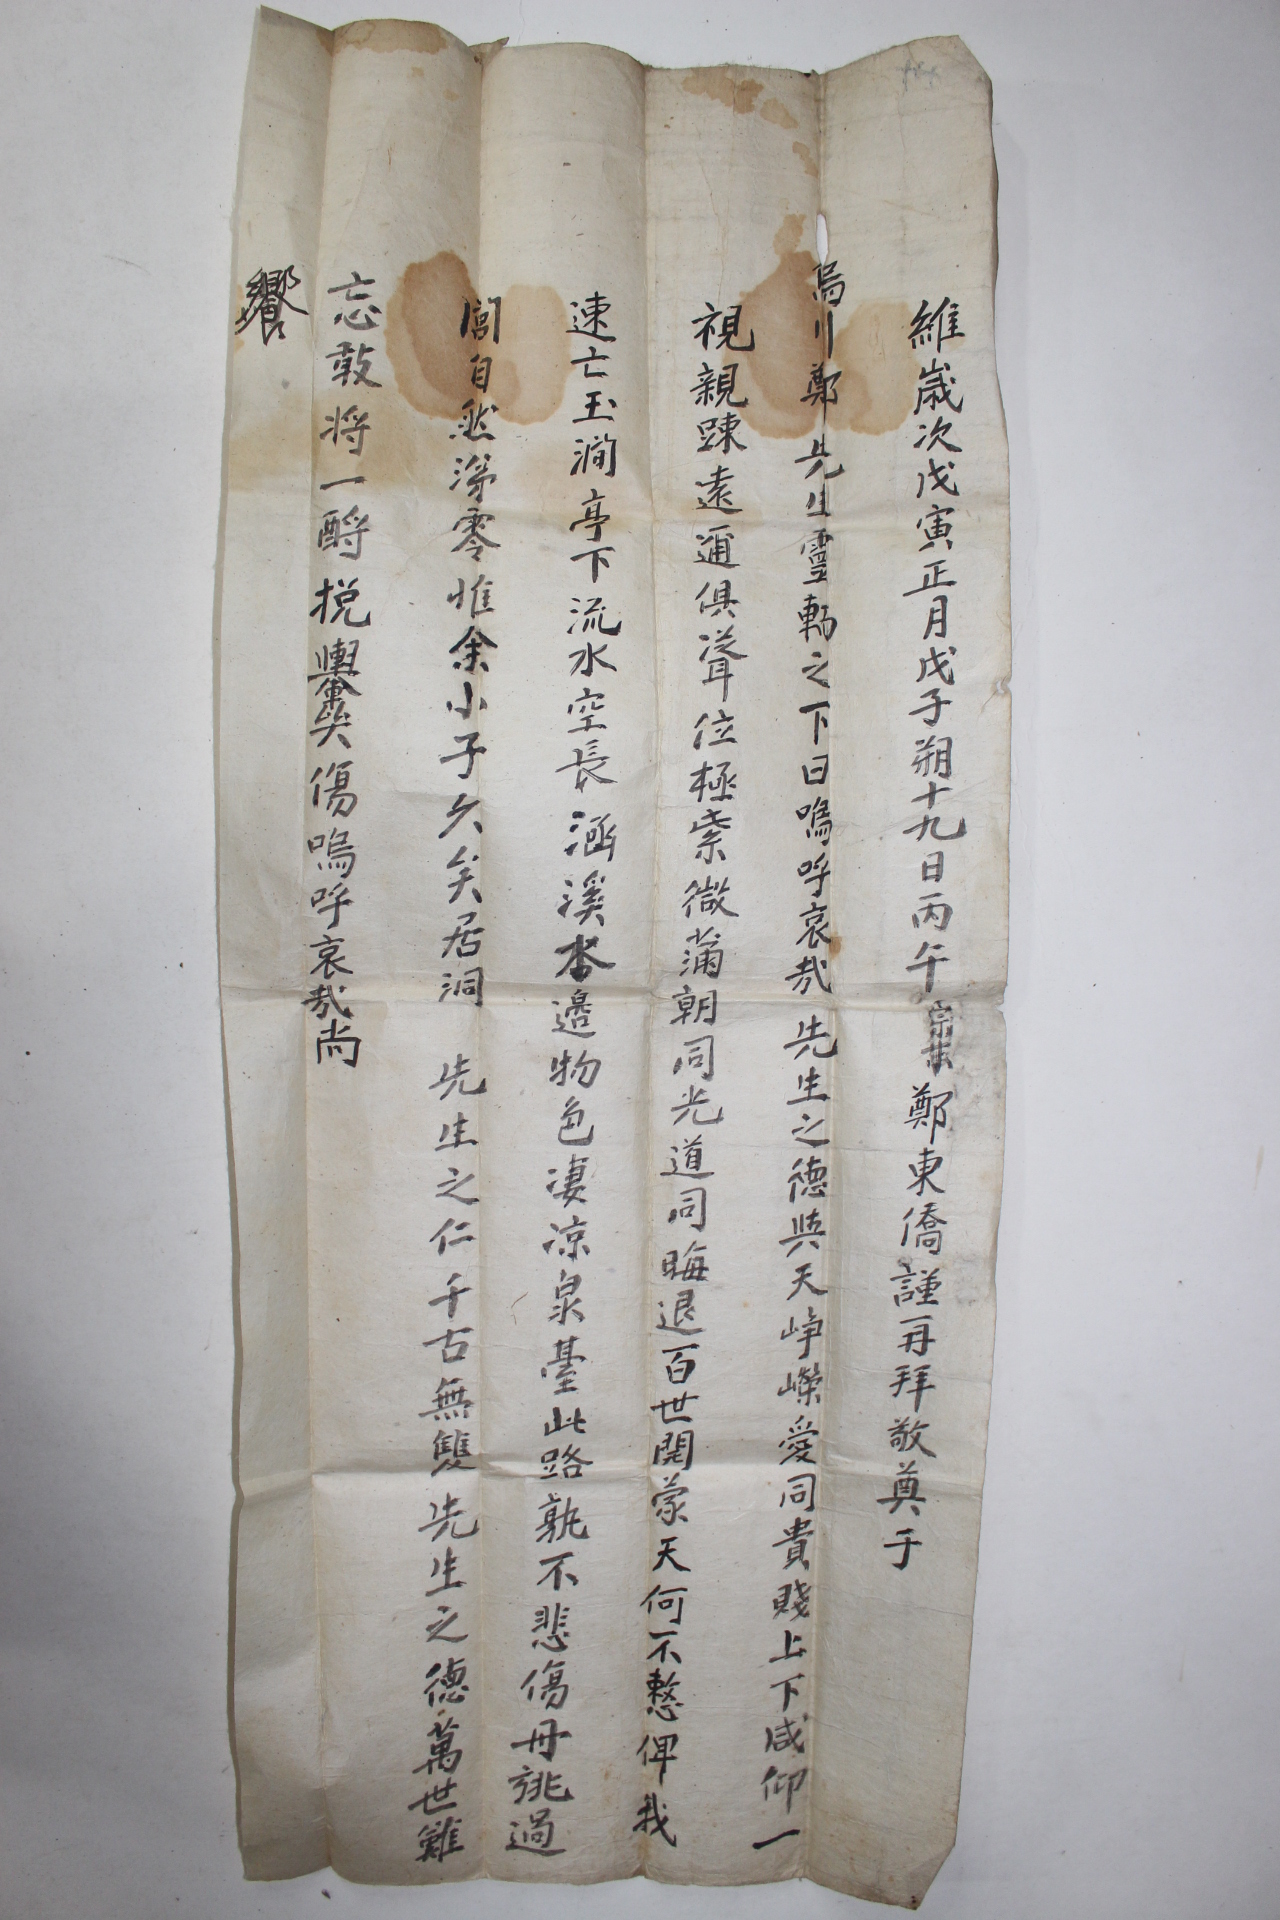 維歲次戊寅正月戊子朔十九日丙午宗末鄭東僑謹再拜敬奠于
烏川鄭先生靈輀之下曰嗚呼哀哉 先生之德與天崢嶸愛同貴賤上下咸仰一
視親踈遠邇俱聳位極紫微蒲朝同光道同晦退百世開蒙天何不憗俾我
速亡玉澗亭下流水空長涵溪臺邊物色凄凉泉臺此路孰不悲傷毋說過
閭自然涕零惟余小子久矣居洞 先生之仁千古無雙 先生之德萬世難
忘敢將一酹挽輿 矣傷嗚呼哀哉尚
饗